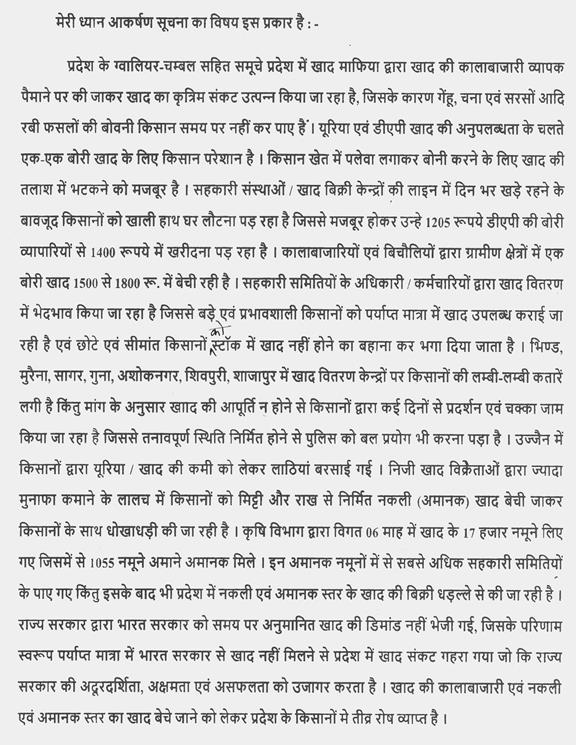 मेरी ध्यान आकर्षण सूचना का विषय इस प्रकार है : -
प्रदेश के ग्वालियर-चम्बल सहित समूचे प्रदेश में खाद माफिया द्वारा खाद की कालाबाजारी व्यापक
पैमाने पर की जाकर खाद का कृत्रिम संकट उत्पन्न किया जा रहा है, जिसके कारण गेंहू, चना एवं सरसों आदि
रबी फसलों की बोवनी किसान समय पर नहीं कर पाए है । यूरिया एवं डीएपी खाद की अनुपलब्धता के चलते
एक-एक बोरी खाद के लिए किसान परेशान है । किसान खेत में पलेवा लगाकर बोनी करने के लिए खाद की
तलाश में भटकने को मजबूर है । सहकारी संस्थाओं / खाद बिक्री केन्द्रों की लाइन में दिन भर खड़े रहने के
बावजूद किसानों को खाली हाथ घर लौटना पड़ रहा है जिससे मजबूर होकर उन्हे 1205 रूपये डीएपी की बोरी
व्यापारियों से 1400 रूपये में खरीदना पड़ रहा है । कालाबाजारियों एवं बिचौलियों द्वारा ग्रामीण क्षेत्रों में एक
बोरी खाद 1500 से 1800 रू. में बेची रही है । सहकारी समितियों के अधिकारी / कर्मचारियों द्वारा खाद वितरण
में भेदभाव किया जा रहा है जिससे बड़े एवं प्रभावशाली किसानों को पर्याप्त मात्रा में खाद उपलब्ध कराई जा
रही है एवं छोटे एवं सीमांत किसानों को स्टॉक में खाद नहीं होने का बहाना कर भगा दिया जाता है । भिण्ड,
मुरैना, सागर, गुना, अशोकनगर, शिवपुरी, शाजापुर में खाद वितरण केन्द्रों पर किसानों की लम्बी-लम्बी कतारें
लगी है किंतु मांग के अनुसार खााद की आपूर्ति न होने से किसानों द्वारा कई दिनों से प्रदर्शन एवं चक्का जाम
किया जा रहा है जिससे तनावपूर्ण स्थिति निर्मित होने से पुलिस को बल प्रयोग भी करना पड़ा है । उज्जैन में
किसानों द्वारा यूरिया / खाद की कमी को लेकर लाठियां बरसाई गई । निजी खाद विक्रेताओं द्वारा ज्यादा
मुनाफा कमाने के लालच में किसानों को मिट्टी और राख से निर्मित नकली (अमानक) खाद बेची जाकर
किसानों के साथ धोखाधड़ी की जा रही है । कृषि विभाग द्वारा विगत 06 माह में खाद के 17 हजार नमूने लिए
गए जिसमें से 1055 नमूने अमाने अमानक मिले । इन अमानक नमूनों में से सबसे अधिक सहकारी समितियों
के पाए गए किंतु इसके बाद भी प्रदेश में नकली एवं अमानक स्तर के खाद की बिक्री धड़ल्ले से की जा रही है ।
राज्य सरकार द्वारा भारत सरकार को समय पर अनुमानित खाद की डिमांड नहीं भेजी गई, जिसके परिणाम
स्वरूप पर्याप्त मात्रा में भारत सरकार से खाद नहीं मिलने से प्रदेश में खाद संकट गहरा गया जो कि राज्य
सरकार की अदूरदर्शिता, अक्षमता एवं असफलता को उजागर करता है । खाद की कालाबाजारी एवं नकली
एवं अमानक स्तर का खाद बेचे जाने को लेकर प्रदेश के किसानों मे तीव्र रोष व्याप्त है ।